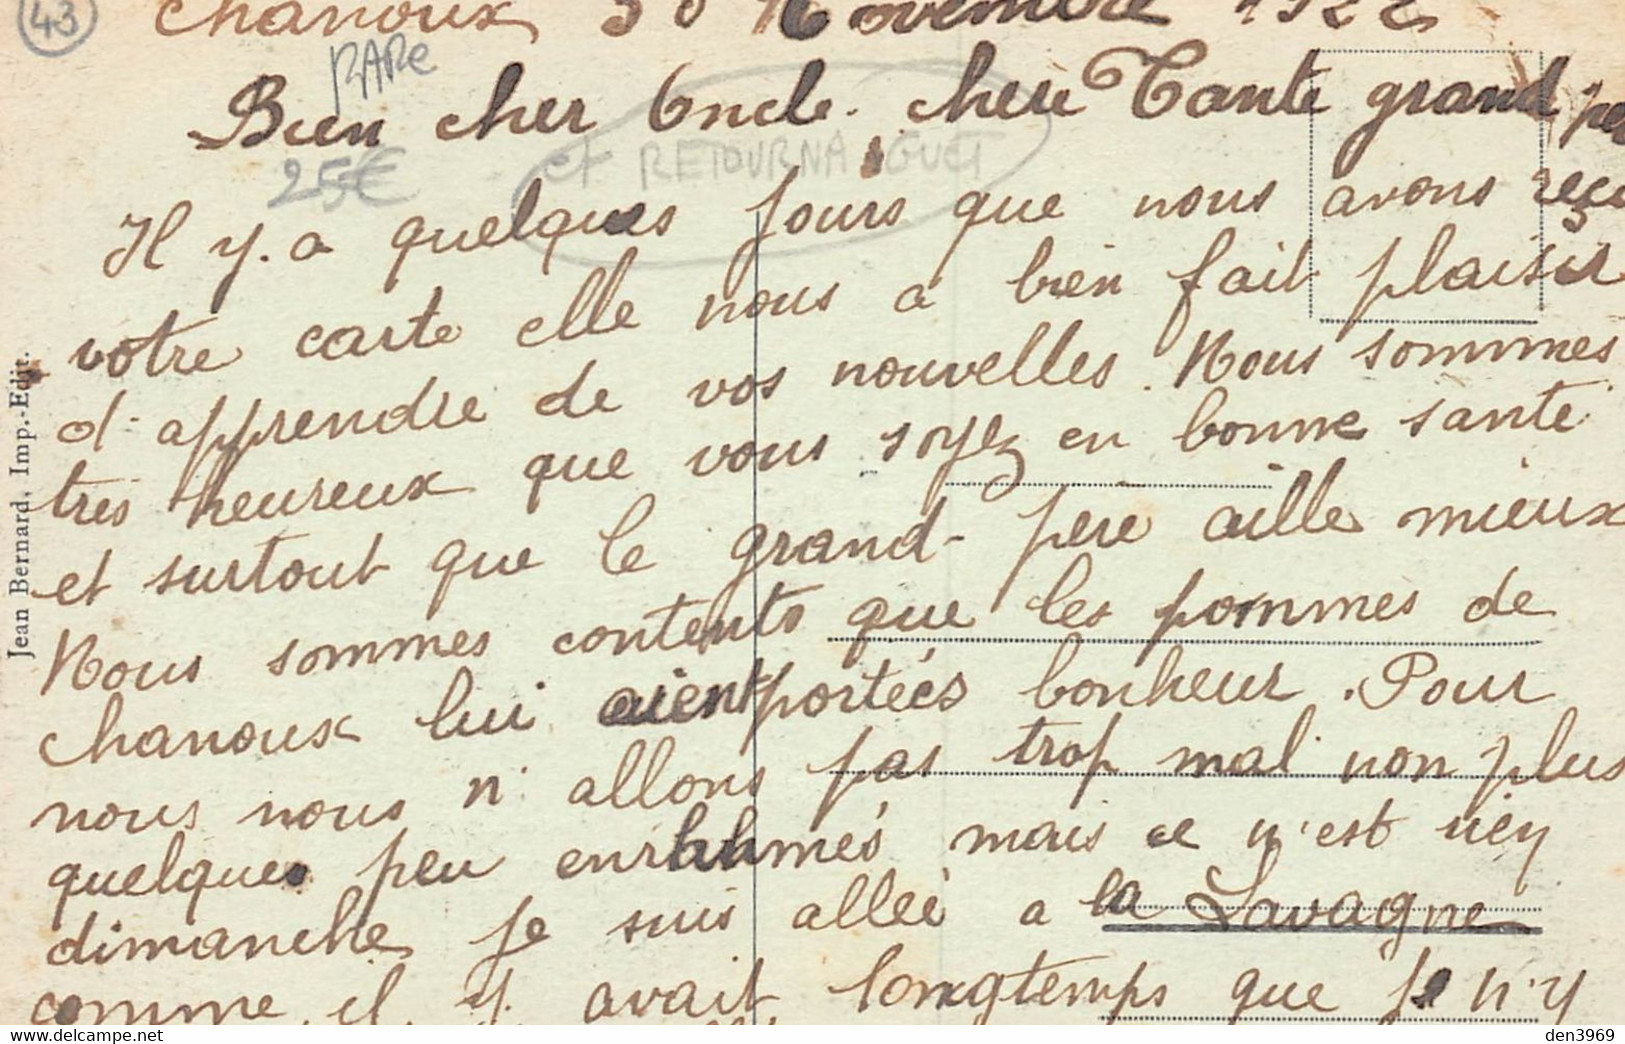 43
Chanoux 30 Novembre 1922
RARE
Bien cher Oncle. chere Tante grand per
25€
et RETOURNAGUET
Il y. a quelques jours que nous avons reçu
votre carte elle nous a bien fait plaisir
d'apprendre de vos nouvelles. Nous sommes
très heureux que vous soyez en bonne santé
et surtout que le grand-père aille mieux
Nous sommes contents que les pommes de
chanoux lui aient portées bonheur. Pour
nous nous n'allons pas trop mal non plus
quelque peu enrhumés mais ce n'est rien
dimanche je suis allée a la Lavagne
comme il y avait longtemps que je n'y
Jean Bernard, Imp.-Edit.
delcampe.net
den3969